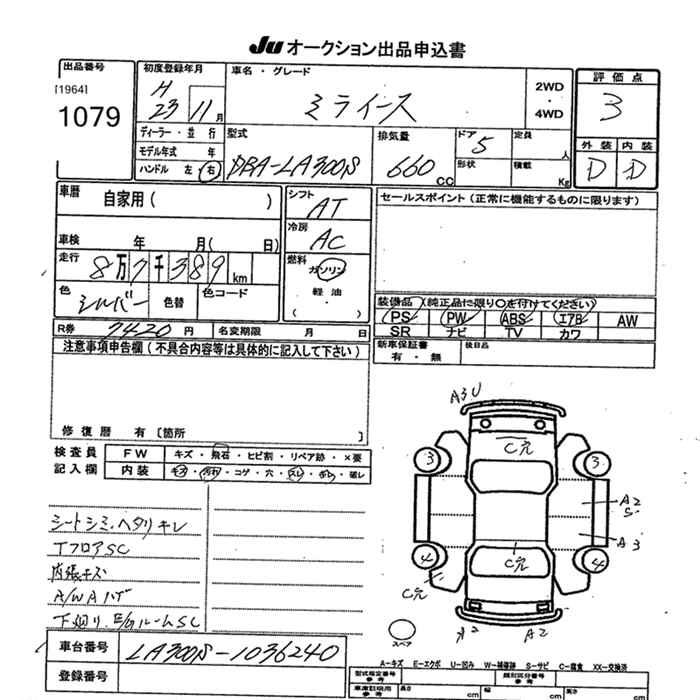 Ju オークション出品申込書
出品番号
[1964]
1079
初度登録年月
H
23 11月
車名・グレード
ミライース
2WD
・
4WD
評価点
3
外装 内装
D D
ディーラー・並行
モデル年式 年
ハンドル 左・右
型式
DBA-LA300S
排気量
660
CC
ドア
5
形状
定員
人
積載
Kg
車歴
自家用( )
車検 年 月( 日)
走行
8万7千389km
色
シルバー
色替
色コード
シフト
AT
冷房
AC
燃料
ガソリン
・
軽油
・
( )
セールスポイント(正常に機能するものに限ります)
装備品(純正品に限り○を付けてください)
PS PW ABS エアB AW
SR ナビ TV カワ
新車保証書
有・無
後日品
R券 7420円
名変期限 月 日
注意事項申告欄(不具合内容等は具体的に記入して下さい)
修復歴 有〔箇所
検査員
記入欄
FW キズ・飛石・ヒビ割・リペア跡・×要
内装 キズ・汚れ・コゲ・穴・スレ・・破レ
シートシミ、ヘタリキレ
TフロアSC
内張キズ
A/WAハゲ
下廻り、E/GルームSC
A3U
C穴
3
3
A2
S
A3
4
4
C穴
C穴
A2
スペア
車台番号
LA300S-1036240
登録番号
A-キズ E-エクボ U-凹み W-補修跡 S-サビ C-腐食 XX-交換済
型式指定番号
参考
類別区分番号
参考
車庫証明用
参考
長さ cm 幅 cm 高さ cm